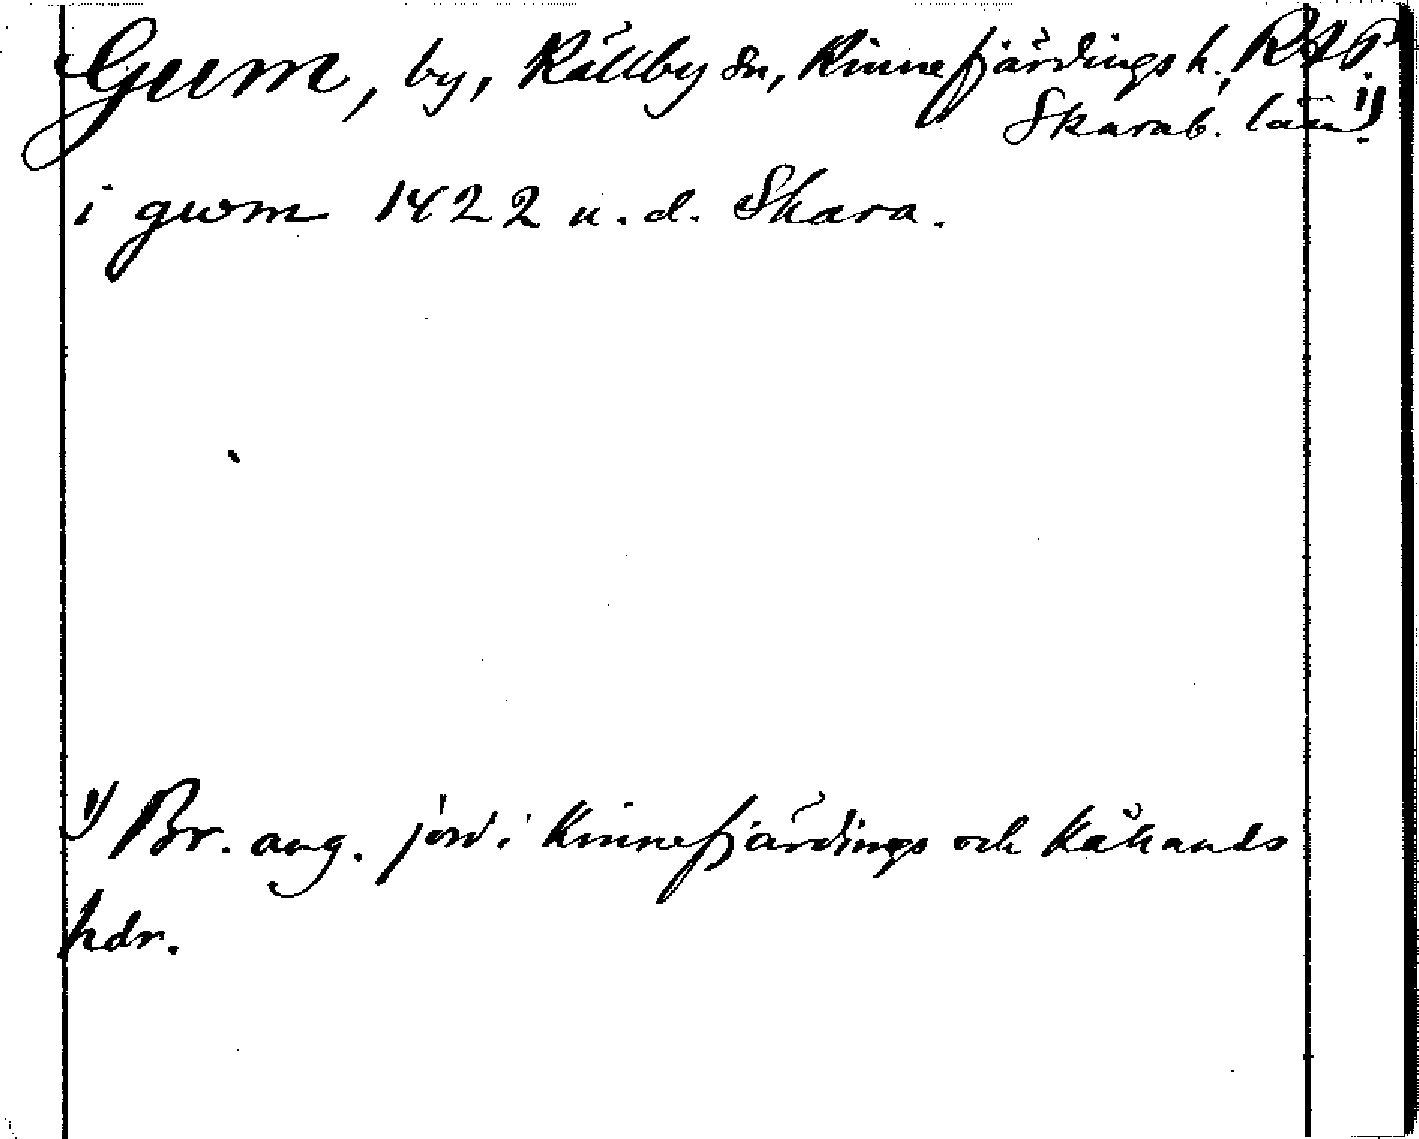 Gum, by, Källby sn, Kinnefjärdings h., RAP
Skarab. län. 1)
i gwm 1422 u. d. Skara.
1) Br. ang. jord i Kinnefjärdings och Kållands
hdr.